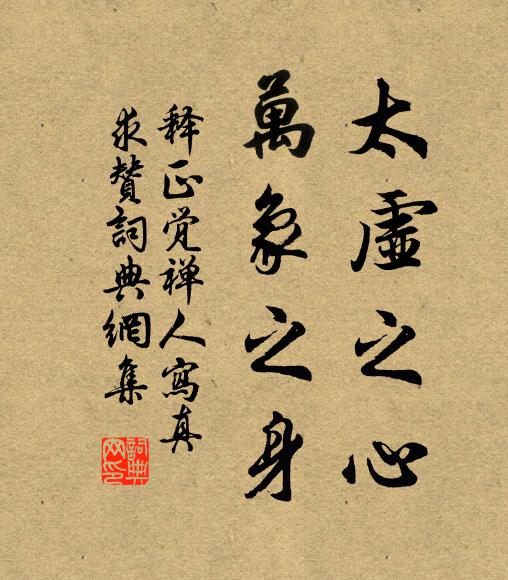 太虛之心
萬象之身
释正觉禅人寫真
求贊詞典網集
詞典网印